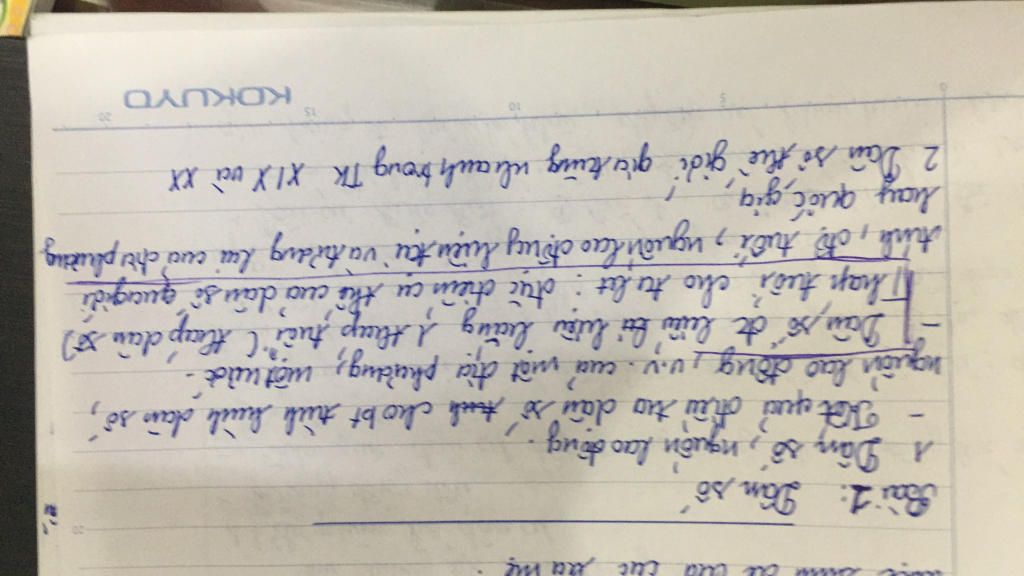 của các
Bài 1: Dân số
1 Dân số, nguồn lao động.
- Kết quả điều tra dân số, cho bt tình hình dân số,
nguồn lao động, v.v. của một địa phương, một nước.
- Dân số đc biểu hiện bằng 1 tháp tuổi. (tháp dân số)
Tháp tuổi cho ta bt: đặc điểm cụ thể của dân số, qua giới
tính, độ tuổi, nguồn lao động hiện tại và tương lai của địa phương
hay quốc gia
2 Dân số thế giới gia tăng nhanh trong TK XIX và XX
0 5 10 15 20
KOKUYO